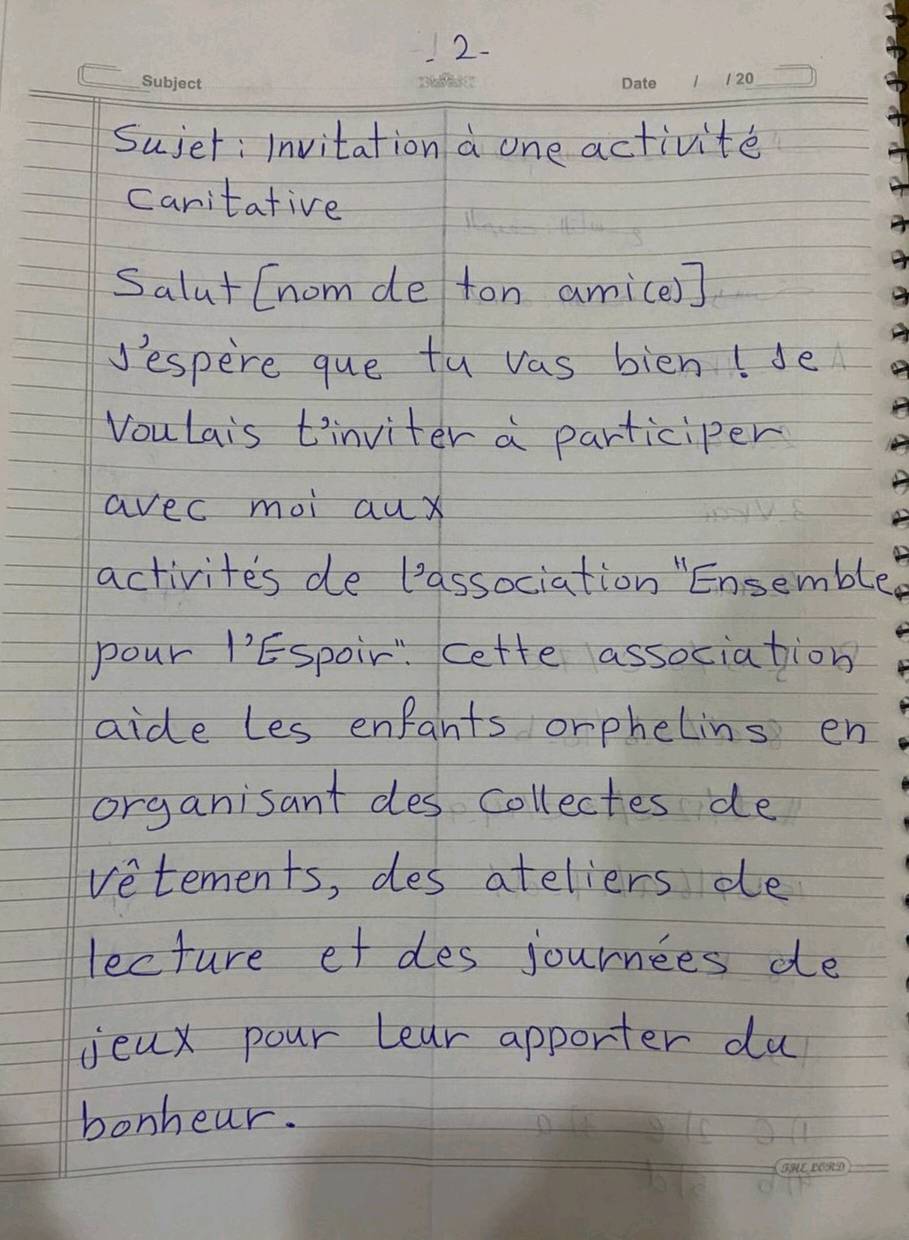 - 2 -
Subject
Date / / 20
Sujet : Invitation à une activité
Caritative
Salut [nom de ton ami(e)]
J'espère que tu vas bien ! Je
Voulais t'inviter à participer
avec moi aux
activités de l'association "Ensemble
pour l'Espoir". Cette association
aide les enfants orphelins en
organisant des collectes de
vêtements, des ateliers de
lecture et des journées de
jeux pour leur apporter du
bonheur.
THE LORD